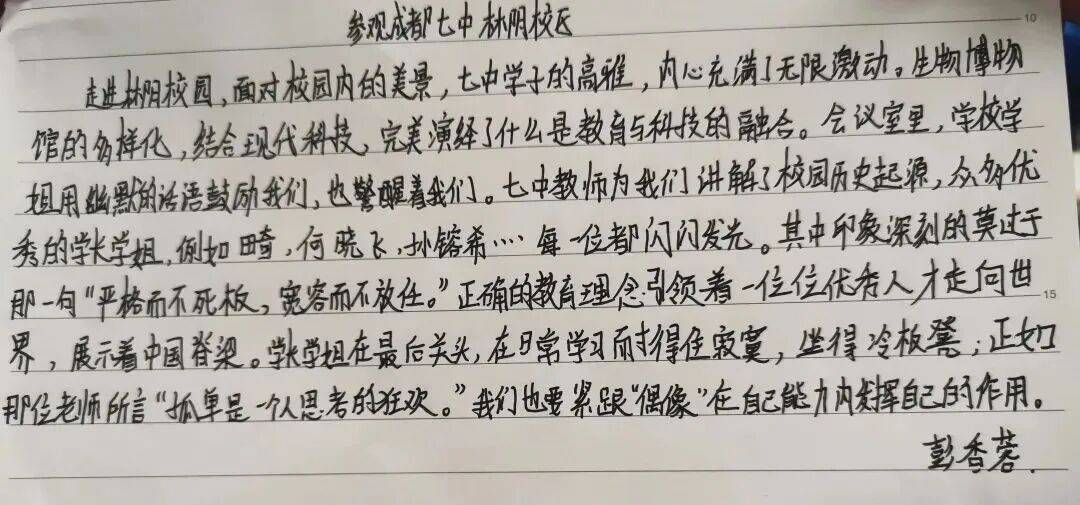 参观成都七中林阴校区
10
走进林阴校园,面对校园内的美景,七中学子的高雅,内心充满了无限激动。生物博物
馆的多样化,结合现代科技,完美演绎了什么是教育与科技的融合。会议室里,学校学
姐用幽默的话语鼓励我们,也警醒着我们。七中教师为我们讲解了校园历史起源,众多优
秀的学长学姐,例如田奇,何晓飞,孙镕希…. 每一位都闪闪发光。其中印象深刻的莫过于
那一句“严格而不死板,宽容而不放任。”正确的教育理念引领着一位位优秀人才走向世
15
界,展示着中国脊梁。学长学姐在最后关头,在日常学习耐得住寂寞,坐得冷板凳;正如
那位老师所言“孤单是一个人思考的狂欢。”我们也要紧跟“偶像”在自己能力内发挥自己的作用。
彭香蓉.